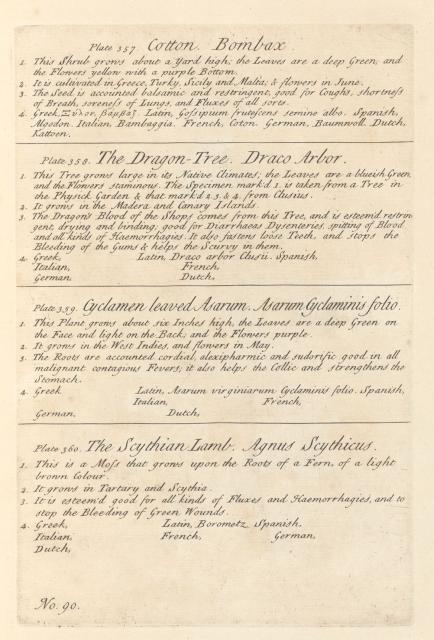 Plate 357 Cotton. Bombax.
1. This Shrub grows about a Yard high; the Leaves are a deep Green, and
the Flowers yellow with a purple Bottom.
2. It is cultivated in Greece, Turky, Sicily and Malta; & flowers in June.
3. The Seed is accounted balsamic and restringent, good for Coughs, shortneſs
of Breath, soreneſs of Lungs, and Fluxes of all sorts.
4. Greek, Ξύλον, βαμβαξ. Latin, Goſsipium frutescens semine albo. Spanish,
Algodon. Italian, Bambaggia. French, Coton. German, Baumwoll. Dutch,
Kattoen.
Plate 358. The Dragon-Tree. Draco Arbor.
1. This Tree grows large in its Native Climates; the Leaves are a blueish Green
and the Flowers staminous. The Specimen mark'd 1. is taken from a Tree in
the Physick Garden & that mark'd 2.3. & 4. from Clusius.
2. It grows in the Madera and Canary Islands.
3. The Dragon's Blood of the Shops comes from this Tree, and is esteem'd restrin
gent, drying and binding, good for Diarrhaeas Dysenteries, spitting of Blood
and all kinds of Haemorrhagies. It also fastens loose Teeth, and stops the
Bleeding of the Gums & helps the Scurvy in them.
4. Greek, Latin, Draco arbor Clusii. Spanish,
Italian, French,
German, Dutch,
Plate 359. Cyclamen leaved Asarum. Asarum Cyclaminis folio.
1. This Plant grows about six Inches high, the Leaves are a deep Green on
the Face and light on the Back, and the Flowers purple.
2. It grows in the West Indies, and flowers in May.
3. The Roots are accounted cordial, alexipharmic and sudorific, good in all
malignant contagious Fevers; it also helps the Collic and strengthens the
Stomach.
4. Greek Latin, Asarum virginiarum Cyclaminis folio. Spanish,
Italian, French,
German, Dutch,
Plate 360. The Scythian Lamb. Agnus Scythicus.
1. This is a Moſs that grows upon the Roots of a Fern, of a light
brown Colour.
2. It grows in Tartary and Scythia.
3. It is esteem'd good for all kinds of Fluxes and Haemorrhagies, and to
stop the Bleeding of Green Wounds.
4. Greek, Latin, Borometz Spanish,
Italian, French, German,
Dutch,
No. 90.